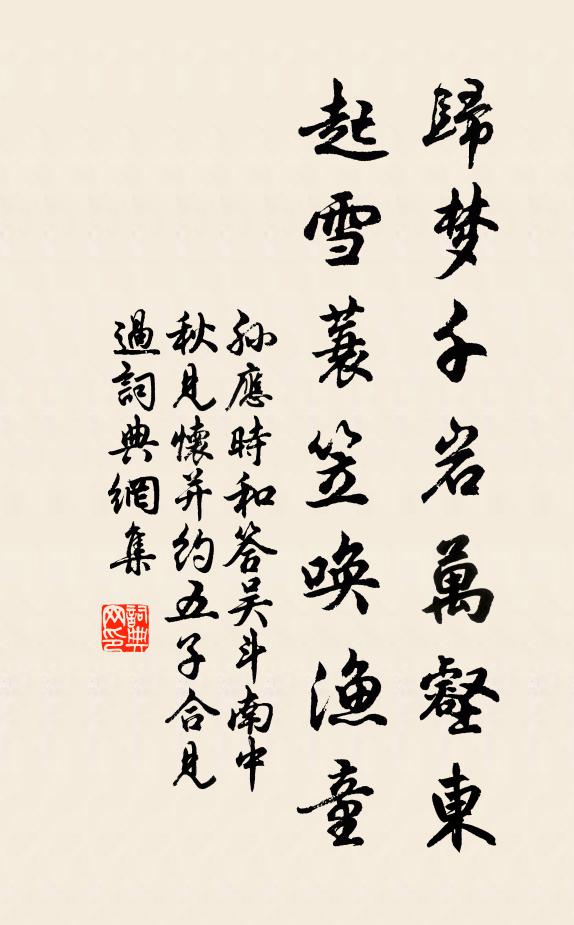 歸梦千岩萬壑東
起雪蓑笠唤漁童
孙應時和答吴斗南中
秋見懷并约五子合見
過詞典網集
詞典网印